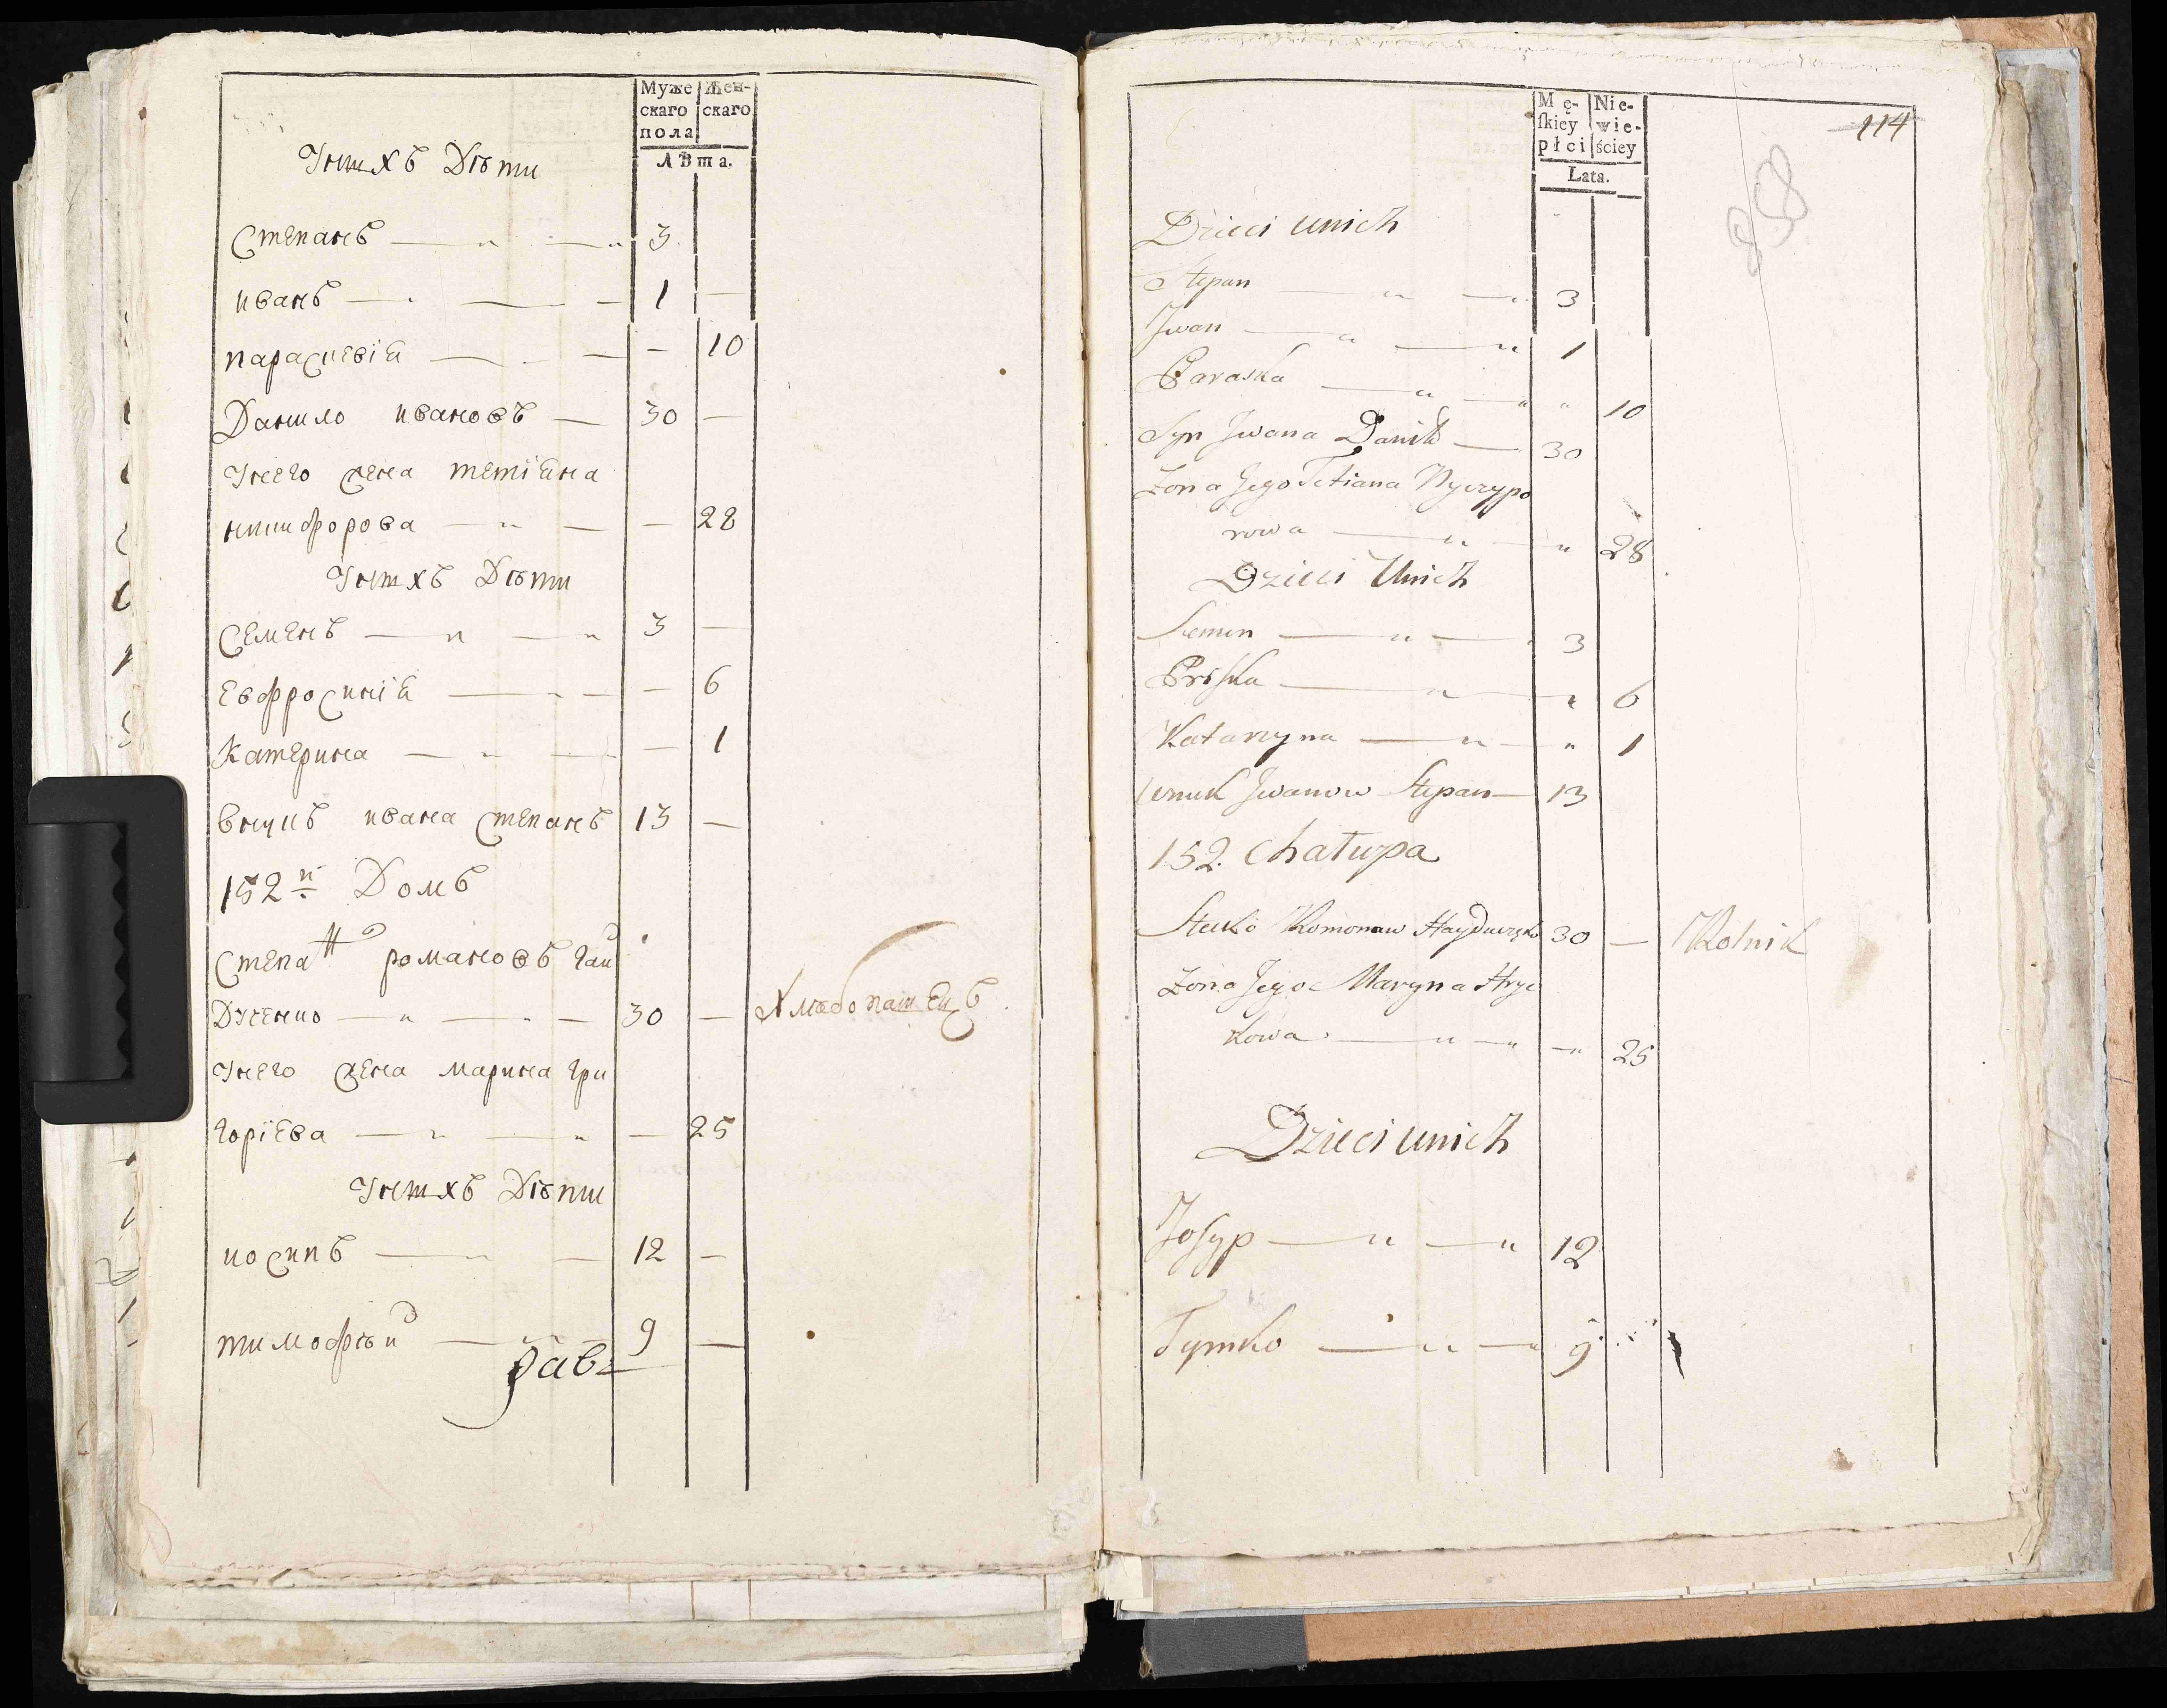 Муже Жен-
скаго скаго
пола
ЛѢта.
Унихъ Дѣти
Степанъ 3
иванъ 1
параскевія 10
Данило ивановъ 30
Унего жена тетіана
никифорова 28
Унихъ Дѣти
Семенъ 3
Евфросинія 6
Катерина 1
внукъ ивана Степанъ 13
152й Домъ
Степанъ романовъ гай
Дученко 30 Хлѣбопашецъ
Унего жена марина гри
горіева 25
Унихъ Дѣти
иосипъ 12
тимофѣй 9
114
Mę- Nie-
ſkiey wie-
płci ściey
Lata.
Dzieci unich
Stepan 3
Jwan 1
Paraska 10
Syn Jwana Daniło 30
Zona Jego Tetiana Nyczypo
rowa 28
Dzieci Unich
Semen 3
Pryśka 6
Katarzyna 1
wnuk Jwanow Stepan 13
152. Chałupa
Stećko Romonaw Hayduczko 30 Rolnik
Zona Jego Maryna Hryc
kowa 25
Dzieci unich
Josyp 12
Tymko 9